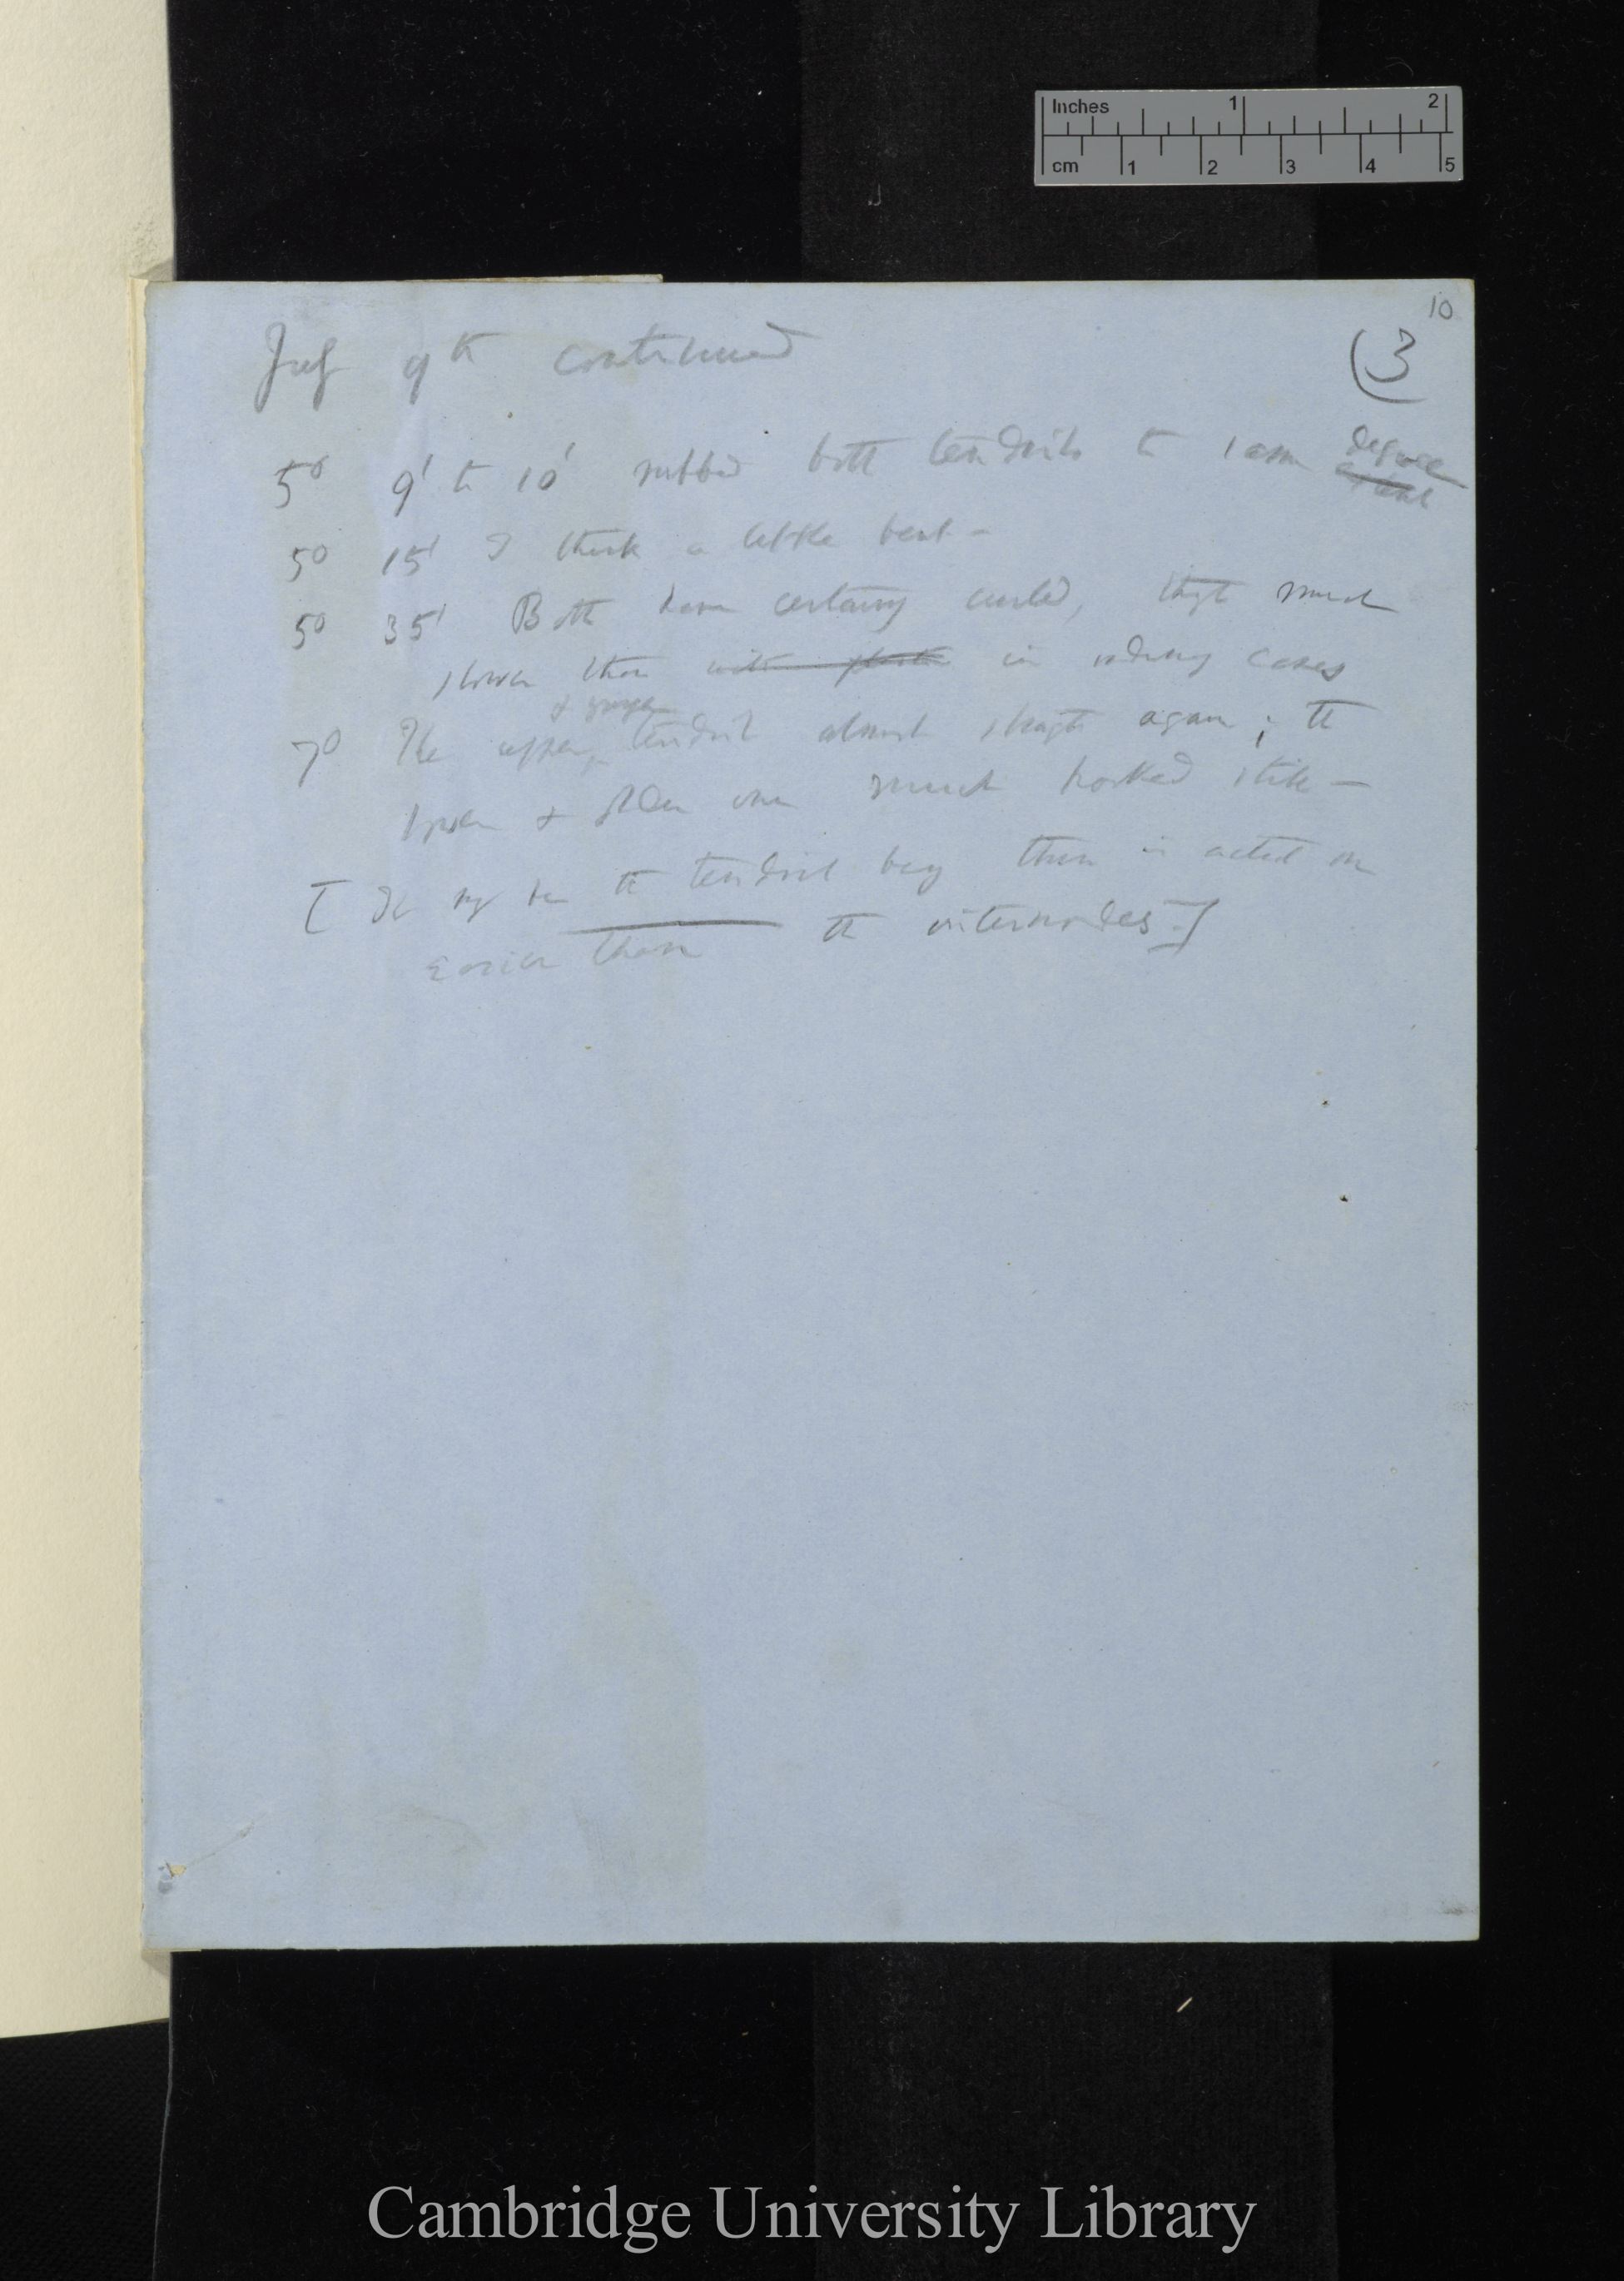 Inches 1 2
cm 1 2 3 4 5
10
July 9th continued
(3
5° 9' to 10' rubbed both tendrils to same degree
5° 15' I think a little bent —
5° 35' Both have certainly curled, though much
slower than in ordinary cases
& younger
7° The upper tendril almost straight again; the
lower & older one much hooked still —
[ It may be the tendril being thin is acted on
easier than the internodes —]
Cambridge University Library